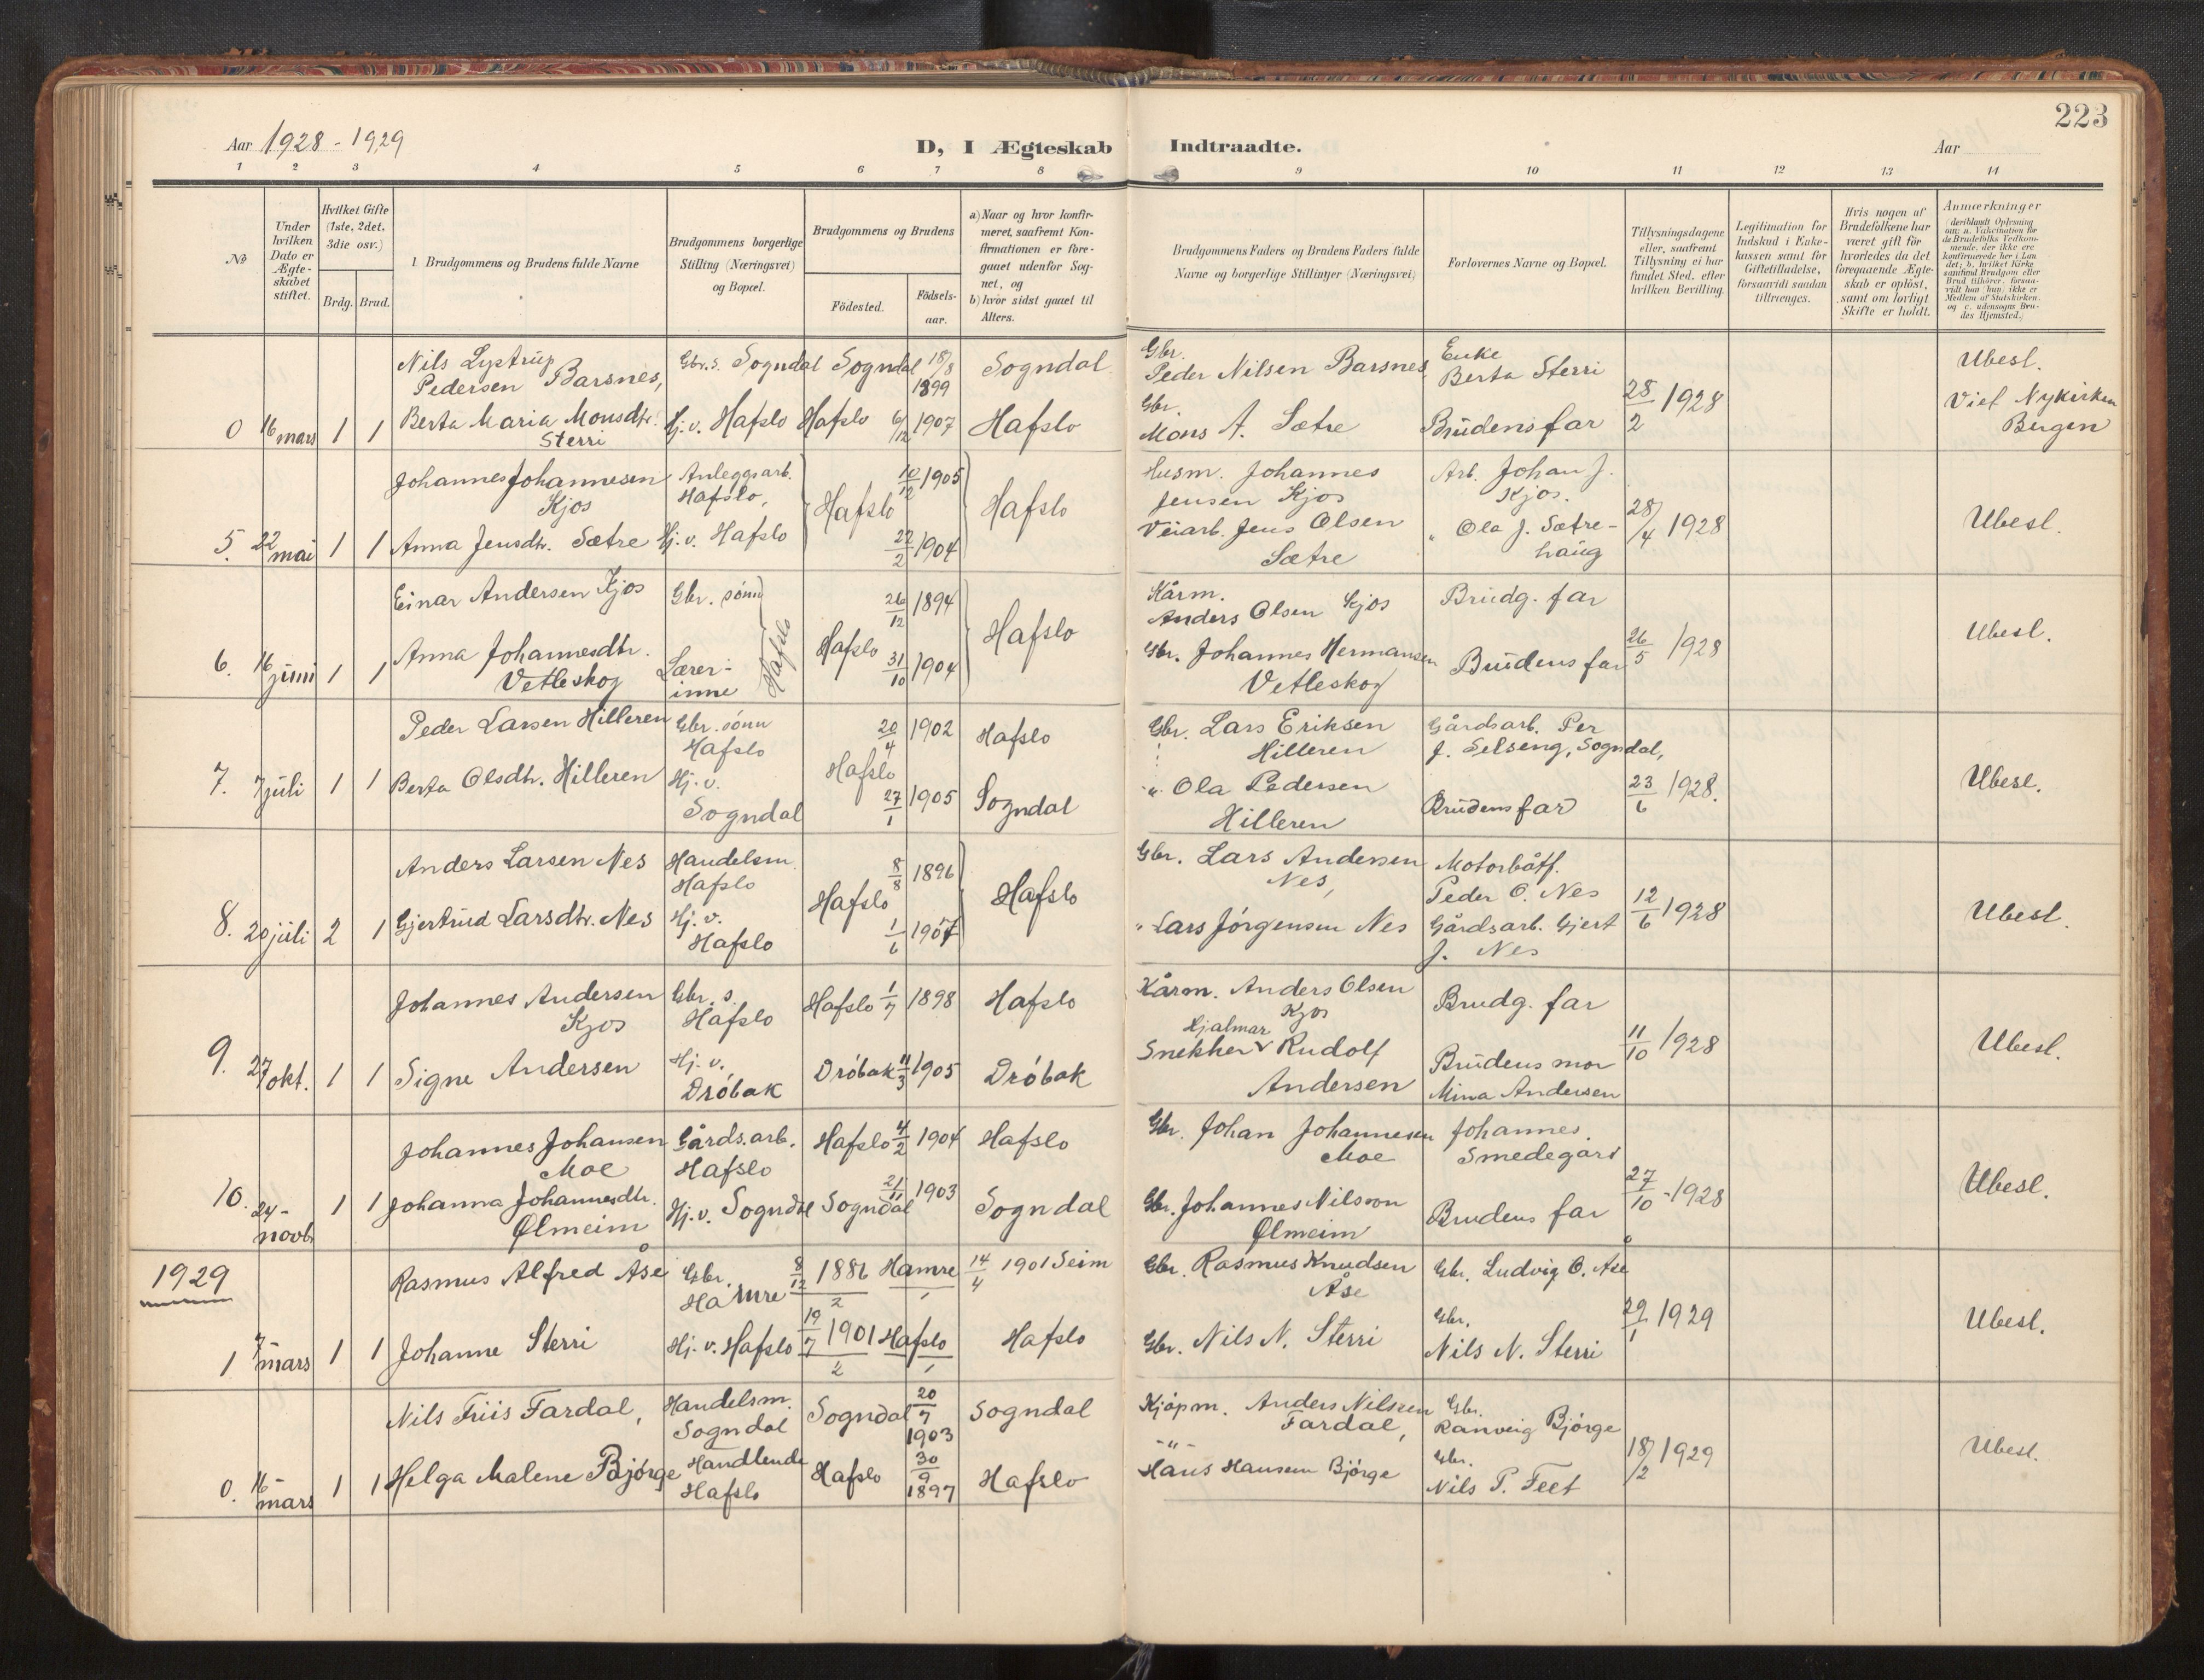 223
Aar 1928 - 1929
D, I Ægteskab Indtraadte.
Aar
1 2 3 4 5 6 7 8 9 10 11 12 13 14
No
Under hvilken Dato er Ægteskabet stiftet.
Hvilket Gifte (1ste, 2det, 3die osv.)
Brdg. Brud.
Brudgommens og Brudens fulde Navne
Brudgommens borgerlige Stilling (Næringsvei) og Bopæl.
Brudgommens og Brudens
Födested.
Födsels-aar.
a) Naar og hvor konfir-
meret, saafremt Kon-
firmationen er fore-
gaaet udenfor Sog-
net, og
b) hvor sidst gaaet til
Alters.
Brudgommens Faders og Brudens Faders fulde
Navne og borgerlige Stillinger (Næringsvei)
Forlovernes Navne og Bopæl.
Tillysningsdagene
eller, saafremt
Tillysning ei har
fundet Sted, efter
hvilken Bevilling.
Legitimation for
Indskud i Enke-
kassen samt for
Giftetilladelse,
forsaavidt saadan
tiltrænges.
Hvis nogen af
Brudefolkene har
været gift før
hvorledes da det
foregaaende Ægte-
skab er oplöst,
samt om lovligt
Skifte er holdt.
Anmærkninger
(deriblandt Oplysning
om: a. Vakcination for
de Brudefolks Vedkom-
mende, der ikke ere
konfirmerede her i Lan
det; b. hvilket Kirke
samfund Brudgom eller
Brud tilhörer, forsaa-
vidt han (hun) ikke er
Medlem af Statskirken,
og c. udensogns Bru-
des Hjemsted.)
Nils Lystrup Gbr. s. Sogndal Sogndal 18/8 Sogndal Gbr. Enke Ubesl.
Pedersen Barsnes, 1899 Peder Nilsen Barsnes Berta Sterri
0 16 mars 1 1 Berta Maria Monsdtr. Hj. v. Hafslo Hafslo 6/12 1907 Hafslo Gbr. 28/2 1928 Viet Nykirken
Sterri Mons A. Sætre Brudens far Bergen
Johannes Johannesen Anleggsarb. 10/12 1905 Husm. Johannes Arb. Johan J.
Kjos Hafslo, Hafslo Hafslo Jensen Kjos Kjos.
5. 22 mai 1 1 Anna Jensdtr. Sætre Hj. v. Hafslo 22/2 1904 Veiarb. Jens Olsen " Ola J. Sætre- 28/4 1928 Ubesl.
Sætre haug
Einar Andersen Kjos Gbr. sönn 26/12 1894 Kårm. Brudg. far
Hafslo Hafslo Hafslo Anders Olsen Kjos
6. 16 juni 1 1 Anna Johannesdtr. Lærer- 31/10 1904 Gbr. Johannes Hermansen Brudens far 26/5 1928 Ubesl.
Vetleskog inne Vetleskog
Peder Larsen Hilleren Gbr. sönn 20/4 1902 Hafslo Gbr. Lars Eriksen Gårdsarb. Per
Hafslo Hafslo Hilleren J. Selseng, Sogndal,
7. 7 juli 1 1 Berta Olsdtr. Hilleren Hj. v. 27/1 1905 Sogndal " Ola Pedersen 23/6 1928. Ubesl.
Sogndal Hilleren Brudens far
Anders Larsen Nes Handelsm. 8/8 1896 Gbr. Lars Andersen Motorbåtf.
Hafslo Hafslo Hafslo Nes, Peder O. Nes
8. 20 juli 2 1 Gjertrud Larsdtr. Nes Hj. v. 1/6 1907 " Lars Jörgensen Nes Gårdsarb. Gjert 12/6 1928 Ubesl.
Hafslo J. Nes
Johannes Andersen Gbr. s. Hafslo 1/7 1898 Hafslo Kårm. Anders Olsen Brudg. far
Kjos Hafslo Kjos
9. 27 okt. 1 1 Signe Andersen Hj. v. Dröbak 11/3 1905 Dröbak Snekker Hjalmar Rudolf Brudens mor 11/10 1928 Ubesl.
Dröbak Andersen Mina Andersen
Johannes Johansen Gårds.arb. Hafslo 4/2 1904 Hafslo Gbr. Johan Johannesen Johannes
Moe Hafslo Moe Smedegard
10. 24- novb. 1 1 Johanna Johannesdtr. Hj. v. Sogndal Sogndal 21/11 1903 Sogndal Gbr. Johannes Nilsson Brudens far 27/10 - 1928 Ubesl.
Ølmeim Ølmeim
1929
Rasmus Alfred Åse Gbr. 8/12 1886 Hamre 14/4 1901 Seim Gbr. Rasmus Knudsen Gbr. Ludvig O. Åse
Hamre 2 1 Åse
1 7 mars 1 1 Johanne Sterri Hj. v. Hafslo 19/7 1901 Hafslo Hafslo Gbr. Nils N. Sterri Gbr. 29/1 1929 Ubesl.
2 1 Nils N. Sterri
Nils Friis Fardal, Handelsm. Sogndal 20/7 Sogndal Kjöpm. Anders Nilsen Gbr.
Sogndal 1903 Fardal, Ranveig Björge
0. 16 mars 1 1 Helga Malene Björge Handlende Hafslo 30/9 Hafslo -"- Gbr. 18/2 1929 Ubesl.
Hafslo 1897 Hans Hansen Björge Nils P. Feet